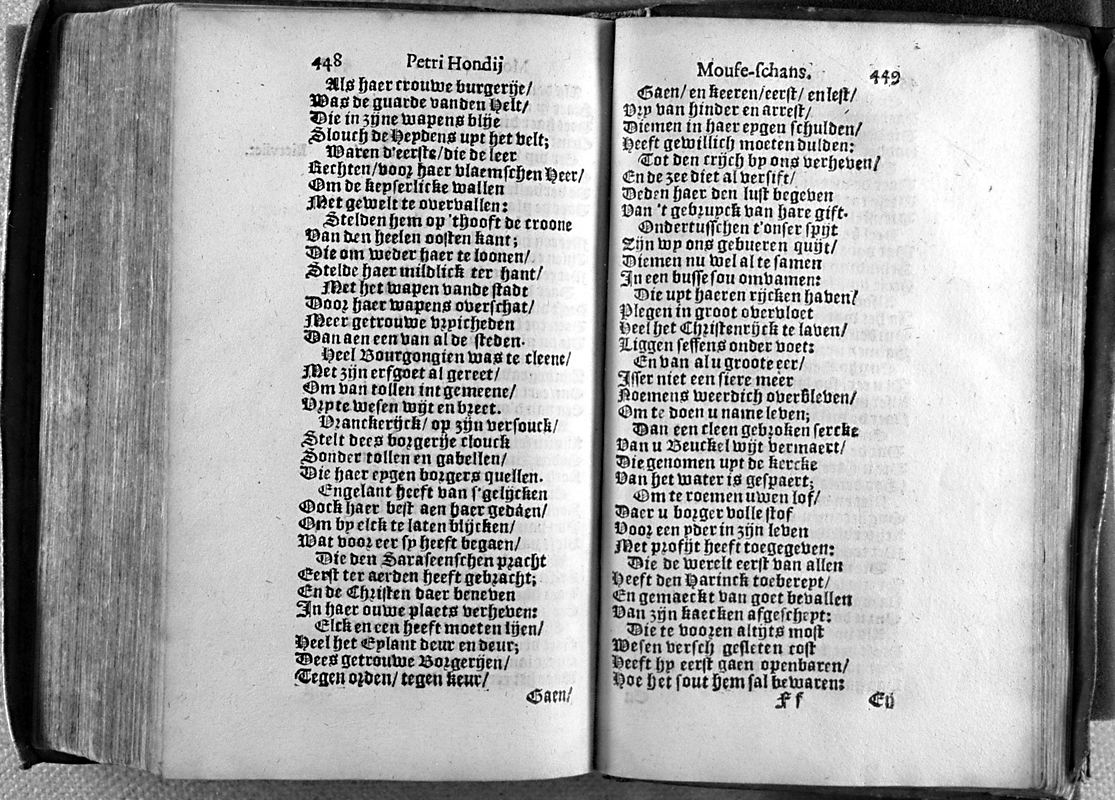 448 Petri Hondij
Als haer trouwe burgerije/
Was de guarde vanden Helt/
Die in zijne wapens blije
Slouch de Heydens upt het velt;
Waren d'eerste/die de leer
Rechten/voor haer vlaemschen Heer/
Om de keyserlicke wallen
Met gewelt te overvallen:
Stelden hem op 'thooft de croone
Van den heelen oosten kant;
Die om weder haer te loonen/
Stelde haer mildlick ter hant/
Met het wapen vande stadt
Door haer wapens overschat/
Meer getrouwe vryicheden
Dan aen een van al de steden.
Heel Bourgongien was te cleene/
Met zijn erfgoet al gereet/
Om van tollen int gemeene/
Vry te wesen wijt en breet.
Vranckerijck/ op zijn versouck/
Stelt dees borgerije clouck
Sonder tollen en gabellen/
Die haer eygen borgers quellen.
Engelant heeft van s'gelijcken
Oock haer best aen haer gedaen/
Om by elck te laten blijcken/
Wat voor eer sy heeft begaen/
Die den Saraseenschen pracht
Eerst ter aerden heeft gebracht;
En de Christen daer beneven
In haer ouwe plaets verheven:
Elck en een heeft moeten lijen/
Heel het Eylant deur en deur;
Dees getrouwe Borgerijen/
Tegen orden/ tegen keur/
Gaen/
Mouse-schans. 449
Gaen/ en keeren/eerst/ en lest/
Vry van hinder en arrest/
Diemen in haer eygen schulden/
Heeft gewillich moeten dulden:
Tot den crijch by ons verheven/
En de zee diet al versift/
Deden haer den lust begeven
Van 't gebruyck van hare gift.
Ondertusschen t'onser spijt
Zijn wy ons gebueren quijt/
Diemen nu wel al te samen
In een busse sou omvamen:
Die upt haeren rijcken haven/
Plegen in groot overvloet
Heel het Christenrijck te laven/
Liggen seffens onder voet:
En van al u groote eer/
Isser niet een siere meer
Noemens weerdich overbleven/
Om te doen u name leven;
Dan een cleen gebroken sercke
Van u Beuckel wijt vermaert/
Die genomen upt de kercke
Van het water is gespaert;
Om te roemen uwen lof/
Daer u borger volle stof
Voor een yder in zijn leven
Met profijt heeft toegegeven:
Die de werelt eerst van allen
Heeft den Harinck toebereyt/
En gemaeckt van goet bevallen
Van zijn kaecken afgescheyt:
Die te vooren altijts most
Wesen versch gesleten cost
Heeft hy eerst gaen openbaren/
Hoe het sout hem sal bewaren:
Ff En